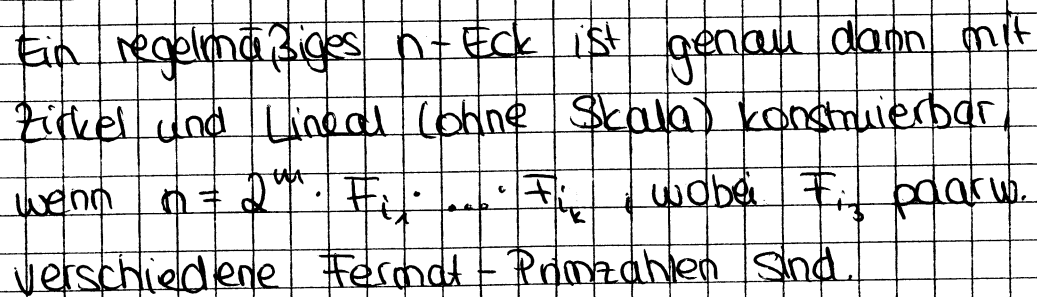 Ein regelmäßiges n-Eck ist genau dann mit
Zirkel und Lineal (ohne Skala) konstruierbar,
wenn n = 2^m · F_{i_1} · ... · F_{i_k}, wobei F_{i_j} paarw.
verschiedene Fermat-Primzahlen sind.